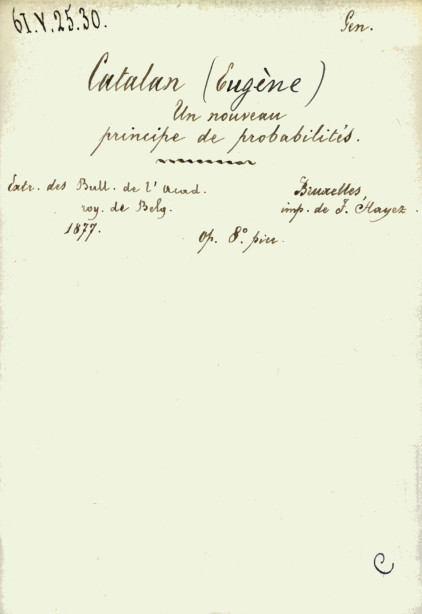 61.V.25.30. Gen.
Catalan (Eugène)
Un nouveau
principe de probabilités.
Extr. des Bull. de l'Acad. Bruxelles,
roy. de Belg. imp. de F. Hayez.
1877. op. 8.° picc.
C